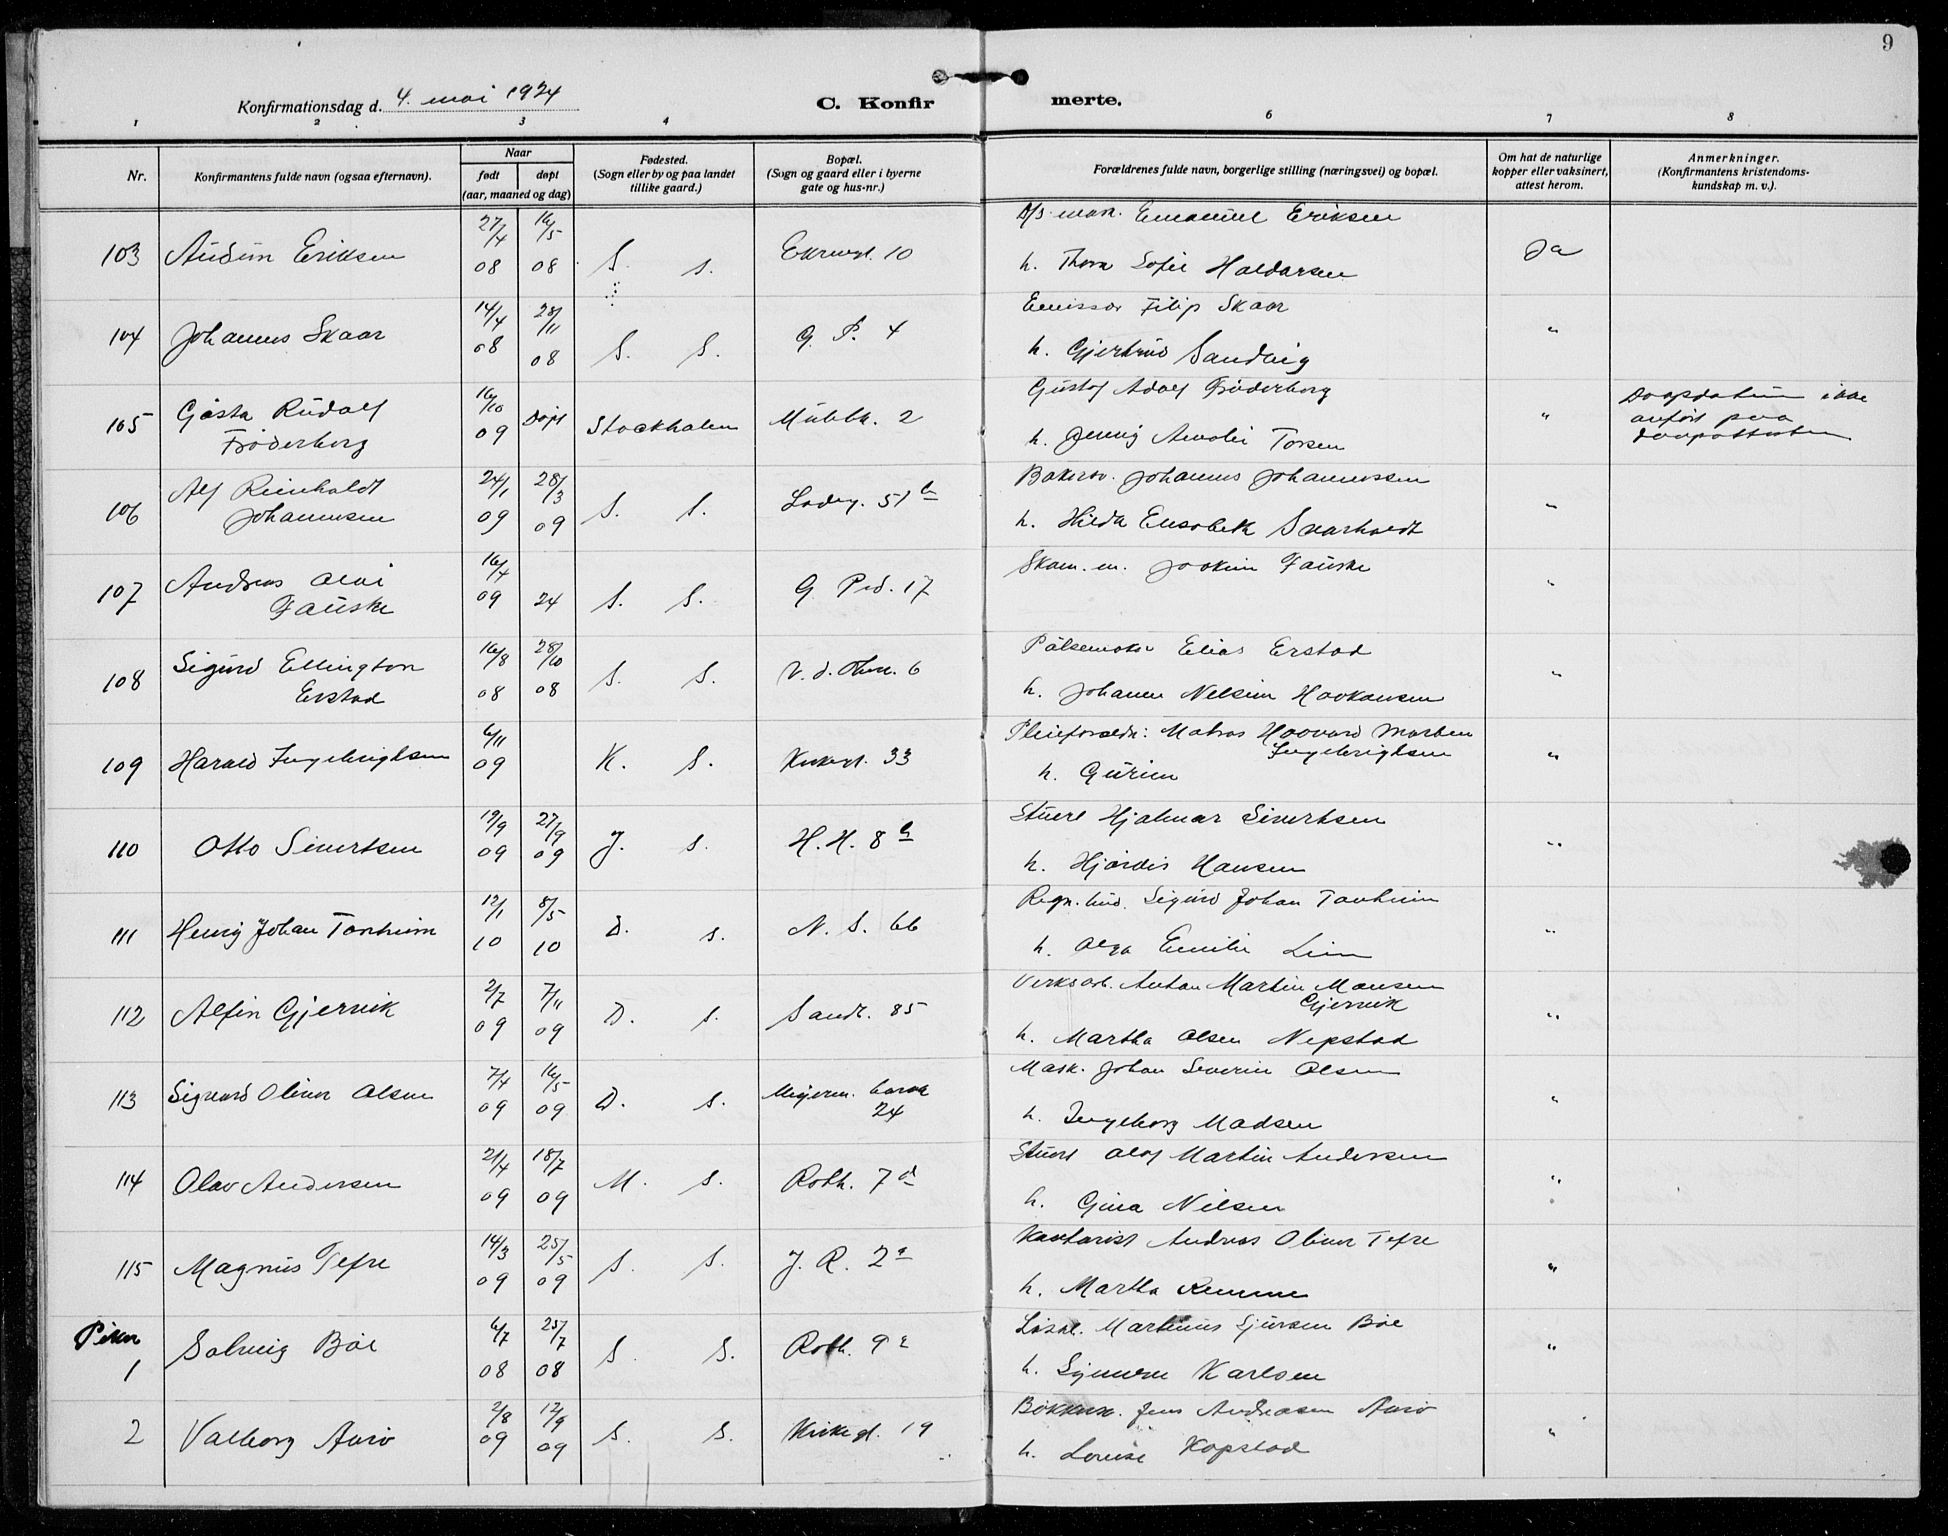 9
Konfirmationsdag d. 4. mai 1924
C. Konfir merte.
1 2 3 4 6 7 8
Nr.
Konfirmantens fulde navn (ogsaa efternavn).
Naar
født døpt
(aar, maaned og dag)
Fødested.
(Sogn eller by og paa landet
tillike gaard.)
Bopæl.
(Sogn og gaard eller i byerne
gate og hus-nr.)
Forældrenes fulde navn, borgerlige stilling (næringsvei) og bopæl.
Om hat de naturlige
kopper eller vaksinert,
attest herom.
Anmerkninger.
(Konfirmantens kristendoms-
kundskap m. v.).
103 Audun Eriksen 27/4 08 16/5 08 S. S. 10
D/s. mask. Emanuel Eriksen
h. Thora Sofie Haldorsen
Ja
104 Johannes Skaar 14/4 08 28/11 08 S. S. G. P. 4
Emissær Filip Skaar
h. Gjertrud Sandvig
"
105 Gösta Rudolf
Fröderberg
16/10 09 Døpt Stockholm Muhlb. 2
Gustof Adolf Fröderberg
h. Jenny Amalie Torsen
"
Daapsdatum ikke
anført paa
daapsattesten
106 Alf Reinholdt
Johannesen
24/1 09 28/3 09 S. S. Ladeg. 51 b
Bakersv. Johannes Johannessen
h. Hilda Elisabeth Svarholdt
"
107 Andreas Olai
Fauske
16/4 09 24 S. S. G. Prd. 17
Skom. m. Joakim Fauske
"
108 Sigurd Ellington
Erstad
16/8 08 28/10 08 S. S. 6
Pølsemaker Elias Erstad
h. Johanne Nelsine Haakonsen
"
109 Harald Ingebrigtsen 6/11 09 K. S. Kirkegt. 33
Pleieforeldr: Matros Haavard Morten
Ingebrigtsen
h. Gurine
"
110 Otto Sivertsen 19/9 09 27/9 09 J. S. H. H. 8 b
Stuert Hjalmar Sivertsen
h. Hjørdis Hansen
"
111 Henry Johan Tonheim 12/1 10 8/5 10 D. S. N. S. 66
Sigurd Johan Tonheim
h. Olga Emilie Lien
"
112 Alfin Gjervik 2/7 09 7/11 09 D. S. Sandv. 85
Verksarb. Anton Martin Monsen
Gjervik
h. Martha Olsen Nepstad
"
113 Sigvard Oliver Olsen 7/4 09 16/5 09 D. S. 24
Mask. Johan Severin Olsen
h. Ingeborg Madsen
"
114 Olav Andersen 21/4 09 18/7 09 M. S. Roth. 7 d
Stuert Olaf Martin Andersen
h. Gina Nilsen
"
115 Magnus Tefre 14/3 09 25/5 09 S. S. J. R. 2 a
Kontorist Andreas Oliver Tefre
h. Martha Remme
"
Piker
1 Solveig Bøe 6/7 08 25/7 08 S. S. Roth. 9
Martinus Sjursen Bøe
h. Karlsen
"
2 Valborg Aurø 2/8 09 12/9 09 S. S. Kirkegt. 19
Jens Andreasen Aurø
h. Louise Kopstad
"